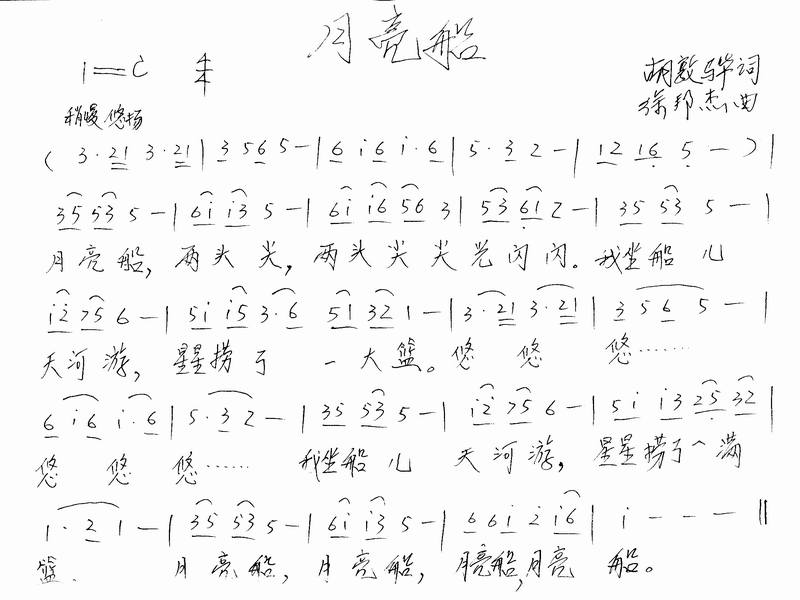 月亮船
1=C 4/4
胡敦骅词
徐邦杰曲
稍慢 悠扬
( 3·21 3·21 | 3 56 5 – | 6 i 6 i·6 | 5·3 2 – | 12 16 5 – ) |
35 53 5 – | 6i i3 5 – | 6i i6 56 3 | 53 61 2 – | 35 53 5 – |
月亮船，两头尖，两头尖尖光闪闪。我坐船儿
i2 75 6 – | 5i i5 3·6 51 32 1 – | 3·21 3·21 | 3 5 6 5 – |
天河游，星星捞了一大篮。悠 悠 悠……
6 i 6 i·6 | 5·3 2 – | 35 53 5 – | i2 75 6 – | 5i i3 25 32 |
悠 悠 悠…… 我坐船儿 天河游，星星捞了一满
1·2 1 – | 35 53 5 – | 6i i3 5 – | 6 6i 2 i6 | i – – – ‖
篮. 月亮船，月亮船，月亮船，月亮 船。